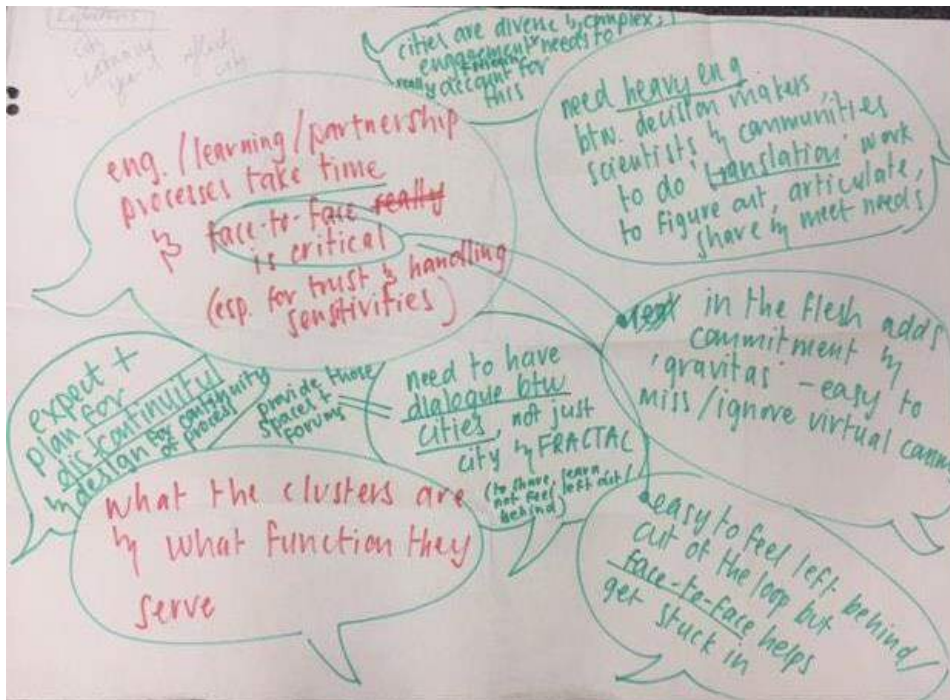 Definitions
cities are diverse & complex;
engagement needs to
really
account for
this
need heavy eng
btw. decision makers
scientists & communities
to do 'translation' work
to figure out, articulate,
share & meet needs
eng./learning/partnership
processes take time
& face-to-face really
is critical
(esp. for trust & handling
sensitivities)
in the flesh adds
commitment &
'gravitas' - easy to
miss/ignore virtual
expect +
plan for
dis-continuity
& design for continuity
of process
provide those
spaces +
forums
need to have
dialogue btw
cities, not just
city & FRACTAL
(to share, learn,
not feel left out/
behind)
what the clusters are
& what function they
serve
easy to feel left behind/
out of the loop but
face-to-face helps
get stuck in